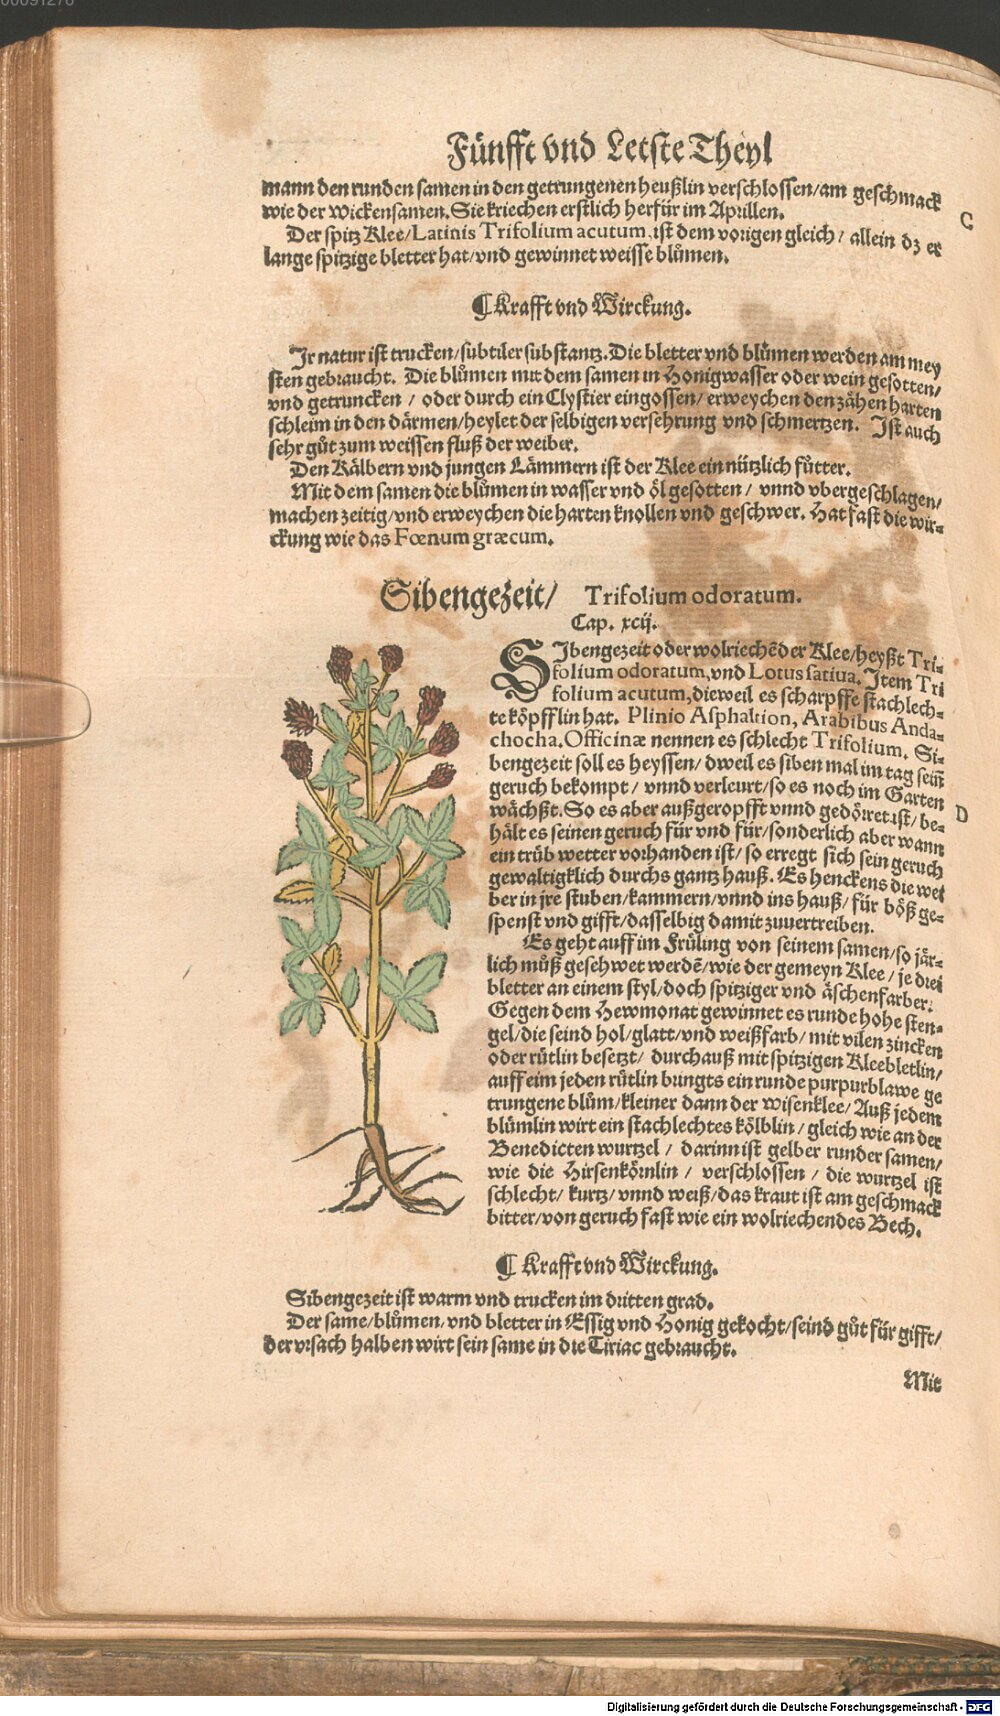 00091276
Fünfft vnd Letste Theyl
mann den runden samen in den getrungenen heußlin verschlossen/am geschmack
wie der Wickensamen. Sie kriechen erstlich herfür im Aprillen.
C
Der spitz Klee/Latinis Trifolium acutum, ist dem vorigen gleich/ allein dz er
lange spitzige bletter hat/vnd gewinnet weisse blůmen.
¶ Krafft vnd Wirckung.
Jr natur ist trucken/subtiler substantz. Die bletter vnd blůmen werden am mey
sten gebraucht. Die blůmen mit dem samen in Honigwasser oder wein gesotten/
vnd getruncken / oder durch ein Clystier eingossen/ erweychen den zähen harten
schleim in den därmen/heylet der selbigen versehrung vnd schmertzen. Ist auch
sehr gůt zum weissen fluß der weiber.
Den Kälbern vnd jungen Lämmern ist der Klee ein nützlich fůtter.
Mit dem samen die blůmen in wasser vnd öl gesotten / vnnd vbergeschlagen/
machen zeitig/vnd erweychen die harten knollen vnd geschwer. Hat fast die wir-
ckung wie das Fœnum græcum.
Sibengezeit/ Trifolium odoratum.
Cap. xcij.
SIbengezeit oder wolriechēder Klee/heyßt Tri-
folium odoratum, vnd Lotus satiua. Item Tri
folium acutum, dieweil es scharpffe stachlech-
te köpfflin hat. Plinio Asphaltion, Arabibus Anda-
chocha. Officinæ nennen es schlecht Trifolium. Si-
bengezeit soll es heyssen/ dweil es siben mal im tag sein̄
geruch bekompt / vnnd verleurt/so es noch im Garten
wächßt. So es aber außgeropfft vnnd gedörret ist/ be-
D
hält es seinen geruch für vnd für/sonderlich aber wann
ein trüb wetter vorhanden ist/ so erregt sich sein geruch
gewaltigklich durchs gantz hauß. Es henckens die wei
ber in jre stuben/kammern/vnnd ins hauß/ für böß ge-
spenst vnd gifft/dasselbig damit zuuertreiben.
Es geht auff im Früling von seinem samen/so jär-
lich můß gesehwet werdē/wie der gemeyn Klee / je drei
bletter an einem styl/doch spitziger vnd äschenfarber.
Gegen dem Hewmonat gewinnet es runde hohe sten-
gel/die seind hol/glatt/vnd weißfarb/ mit vilen zincken
oder rütlin besetzt/ durchauß mit spitzigen Kleebletlin/
auff eim jeden rütlin bringts ein runde purpurblawe ge
trungene blům/kleiner dann der wisenklee/ Auß jedem
blůmlin wirt ein stachlechtes kölblin/ gleich wie an der
Benedicten wurtzel / darinn ist gelber runder samen/
wie die Hirsenkörnlin / verschlossen / die wurtzel ist
schlecht/ kurtz/ vnnd weiß/das kraut ist am geschmack
bitter/von geruch fast wie ein wolriechendes Bech.
¶ Krafft vnd Wirckung.
Sibengezeit ist warm vnd trucken im dritten grad.
Der same/blůmen/vnd bletter in Essig vnd Honig gekocht/seind gůt für gifft/
der vrsach halben wirt sein same in die Tiriac gebraucht.
Mit
Digitalisierung gefördert durch die Deutsche Forschungsgemeinschaft - DFG